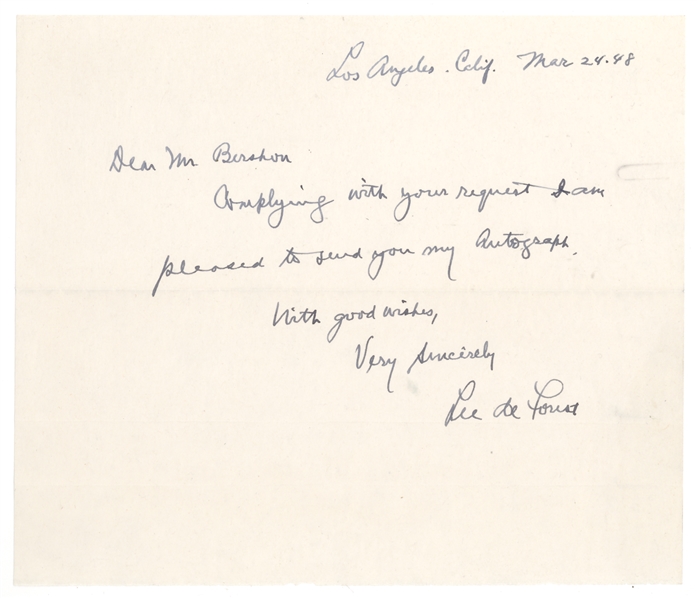 Los Angeles. Calif. Mar 24.48
Dear Mr Bershon
Complying with your request I am
pleased to send you my Autograph.
With good wishes,
Very Sincerely
Lee de Forest